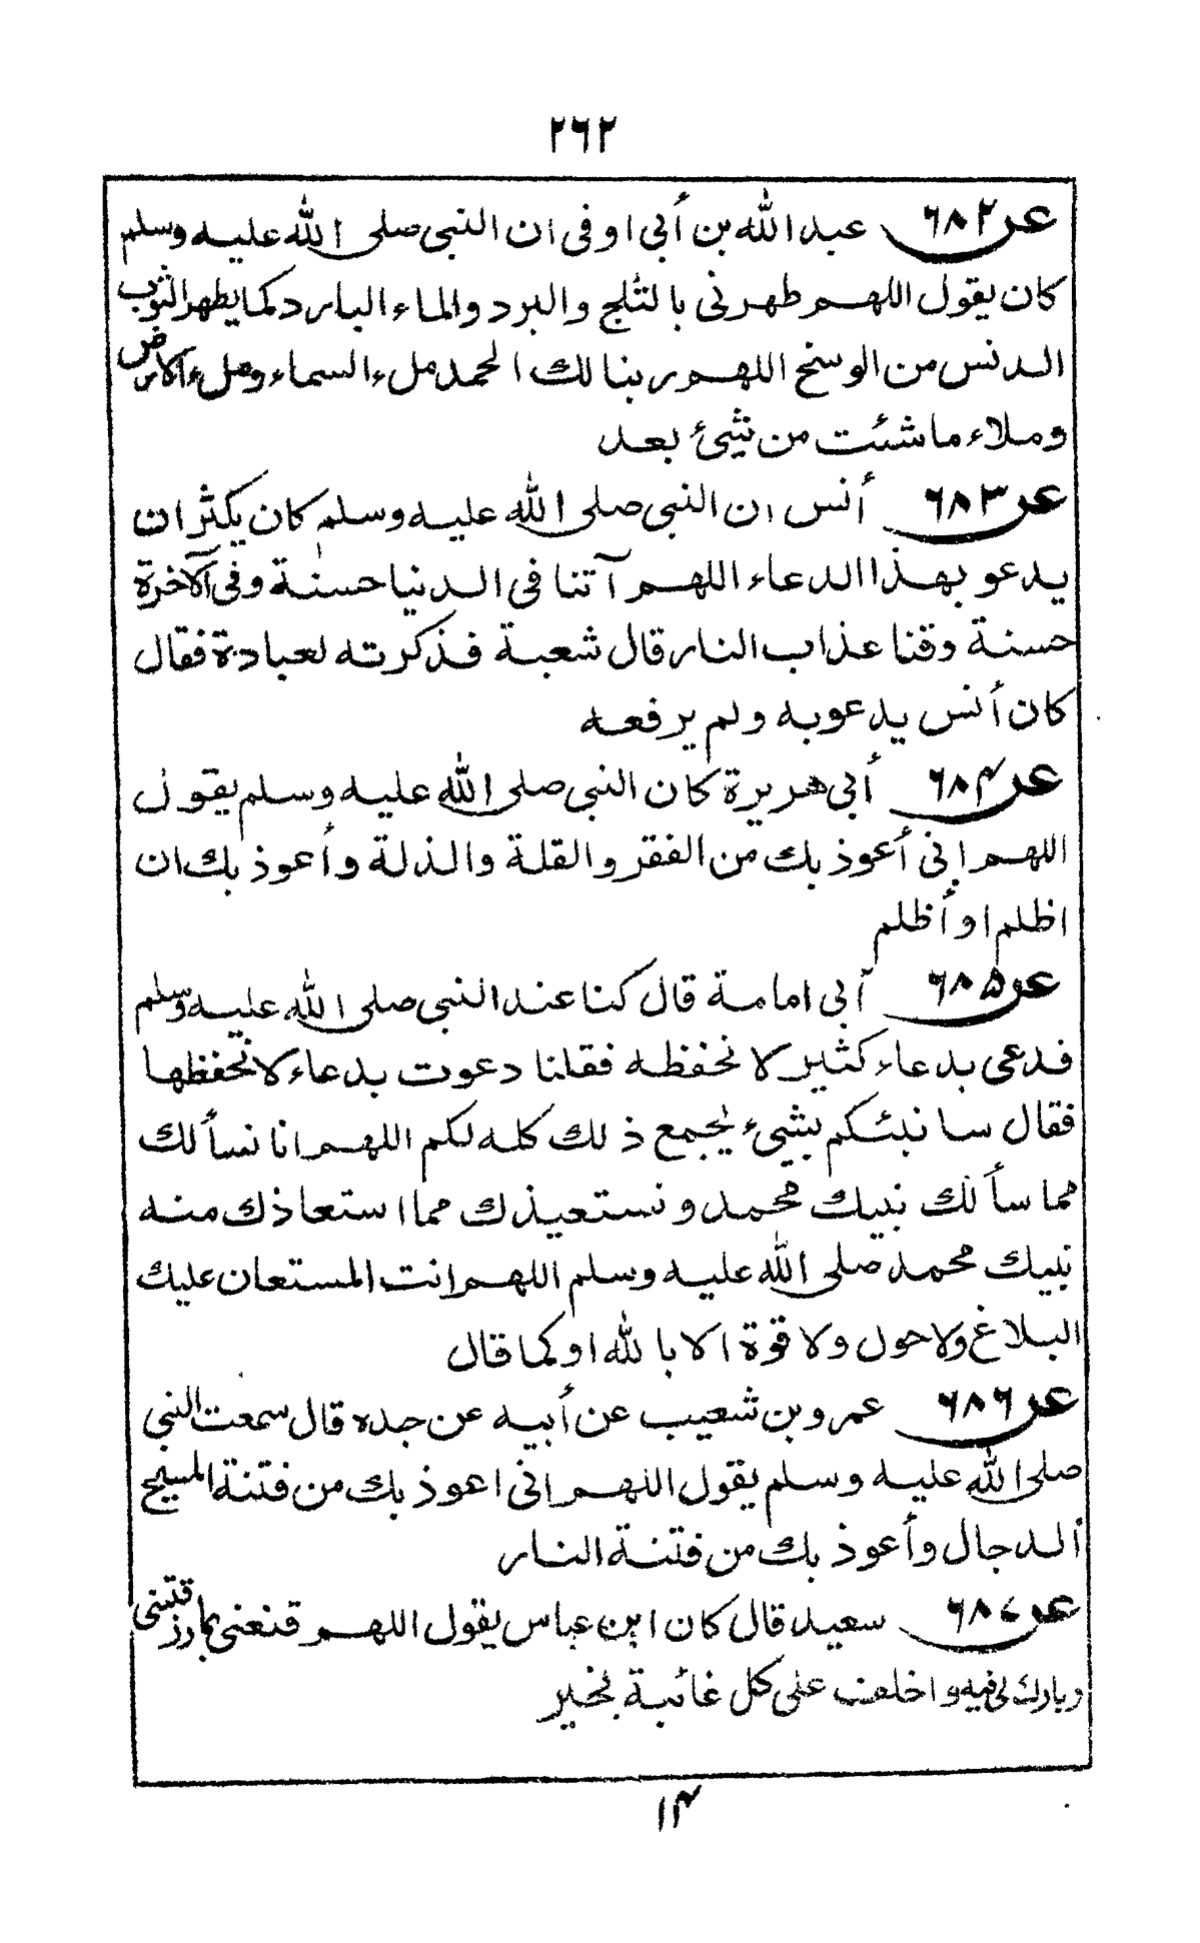 ٢٦٢
عن ٦٨٢ عبد الله بن أبي اوفى ان النبي صلى الله عليه وسلم
كان يقول اللهم طهرنى بالثلج والبرد والماء البارد كما يطهر الثوب
الدنس من الوسخ اللهم ربنا لك الحمد ملء السماء وملء الارض
وملاء ما شئت من شيئ بعد
عن ٦٨٣ أنس ان النبي صلى الله عليه وسلم كان يكثر ان
يدعو بهذا الدعاء اللهم آتنا في الدنيا حسنة وفى الآخرة
حسنة وقنا عذاب النار قال شعبة فذكرته لعبادة فقال
كان أنس يدعوبه ولم يرفعه
عن ٦٨٤ أبي هريرة كان النبي صلى الله عليه وسلم يقول
اللهم إنى أعوذ بك من الفقر والقلة والذلة وأعوذ بك ان
اظلم او أظلم
عن ٦٨٥ أبى امامة قال كنا عند النبي صلى الله عليه وسلم
فدعى بدعاء كثير لا نحفظه فقلنا دعوت بدعاء لا نحفظها
فقال سانبئكم بشيء يجمع ذلك كله لكم اللهم انا نسألك
مما سألك نبيك محمد ونستعيذك مما استعاذك منه
نبيك محمد صلى الله عليه وسلم اللهم انت المستعان عليك
البلاغ ولا حول ولا قوة الا بالله او كما قال
عن ٦٨٦ عمرو بن شعيب عن أبيه عن جده قال سمعت النبي
صلى الله عليه وسلم يقول اللهم إنى اعوذ بك من فتنة المسيح
ألدجال وأعوذ بك من فتنة النار
عن ٦٨٧ سعيد قال كان ابن عباس يقول اللهم قنعنى بما رزقتنى
وبارك لى فيه واخلف على كل غائبة بخير
١٤